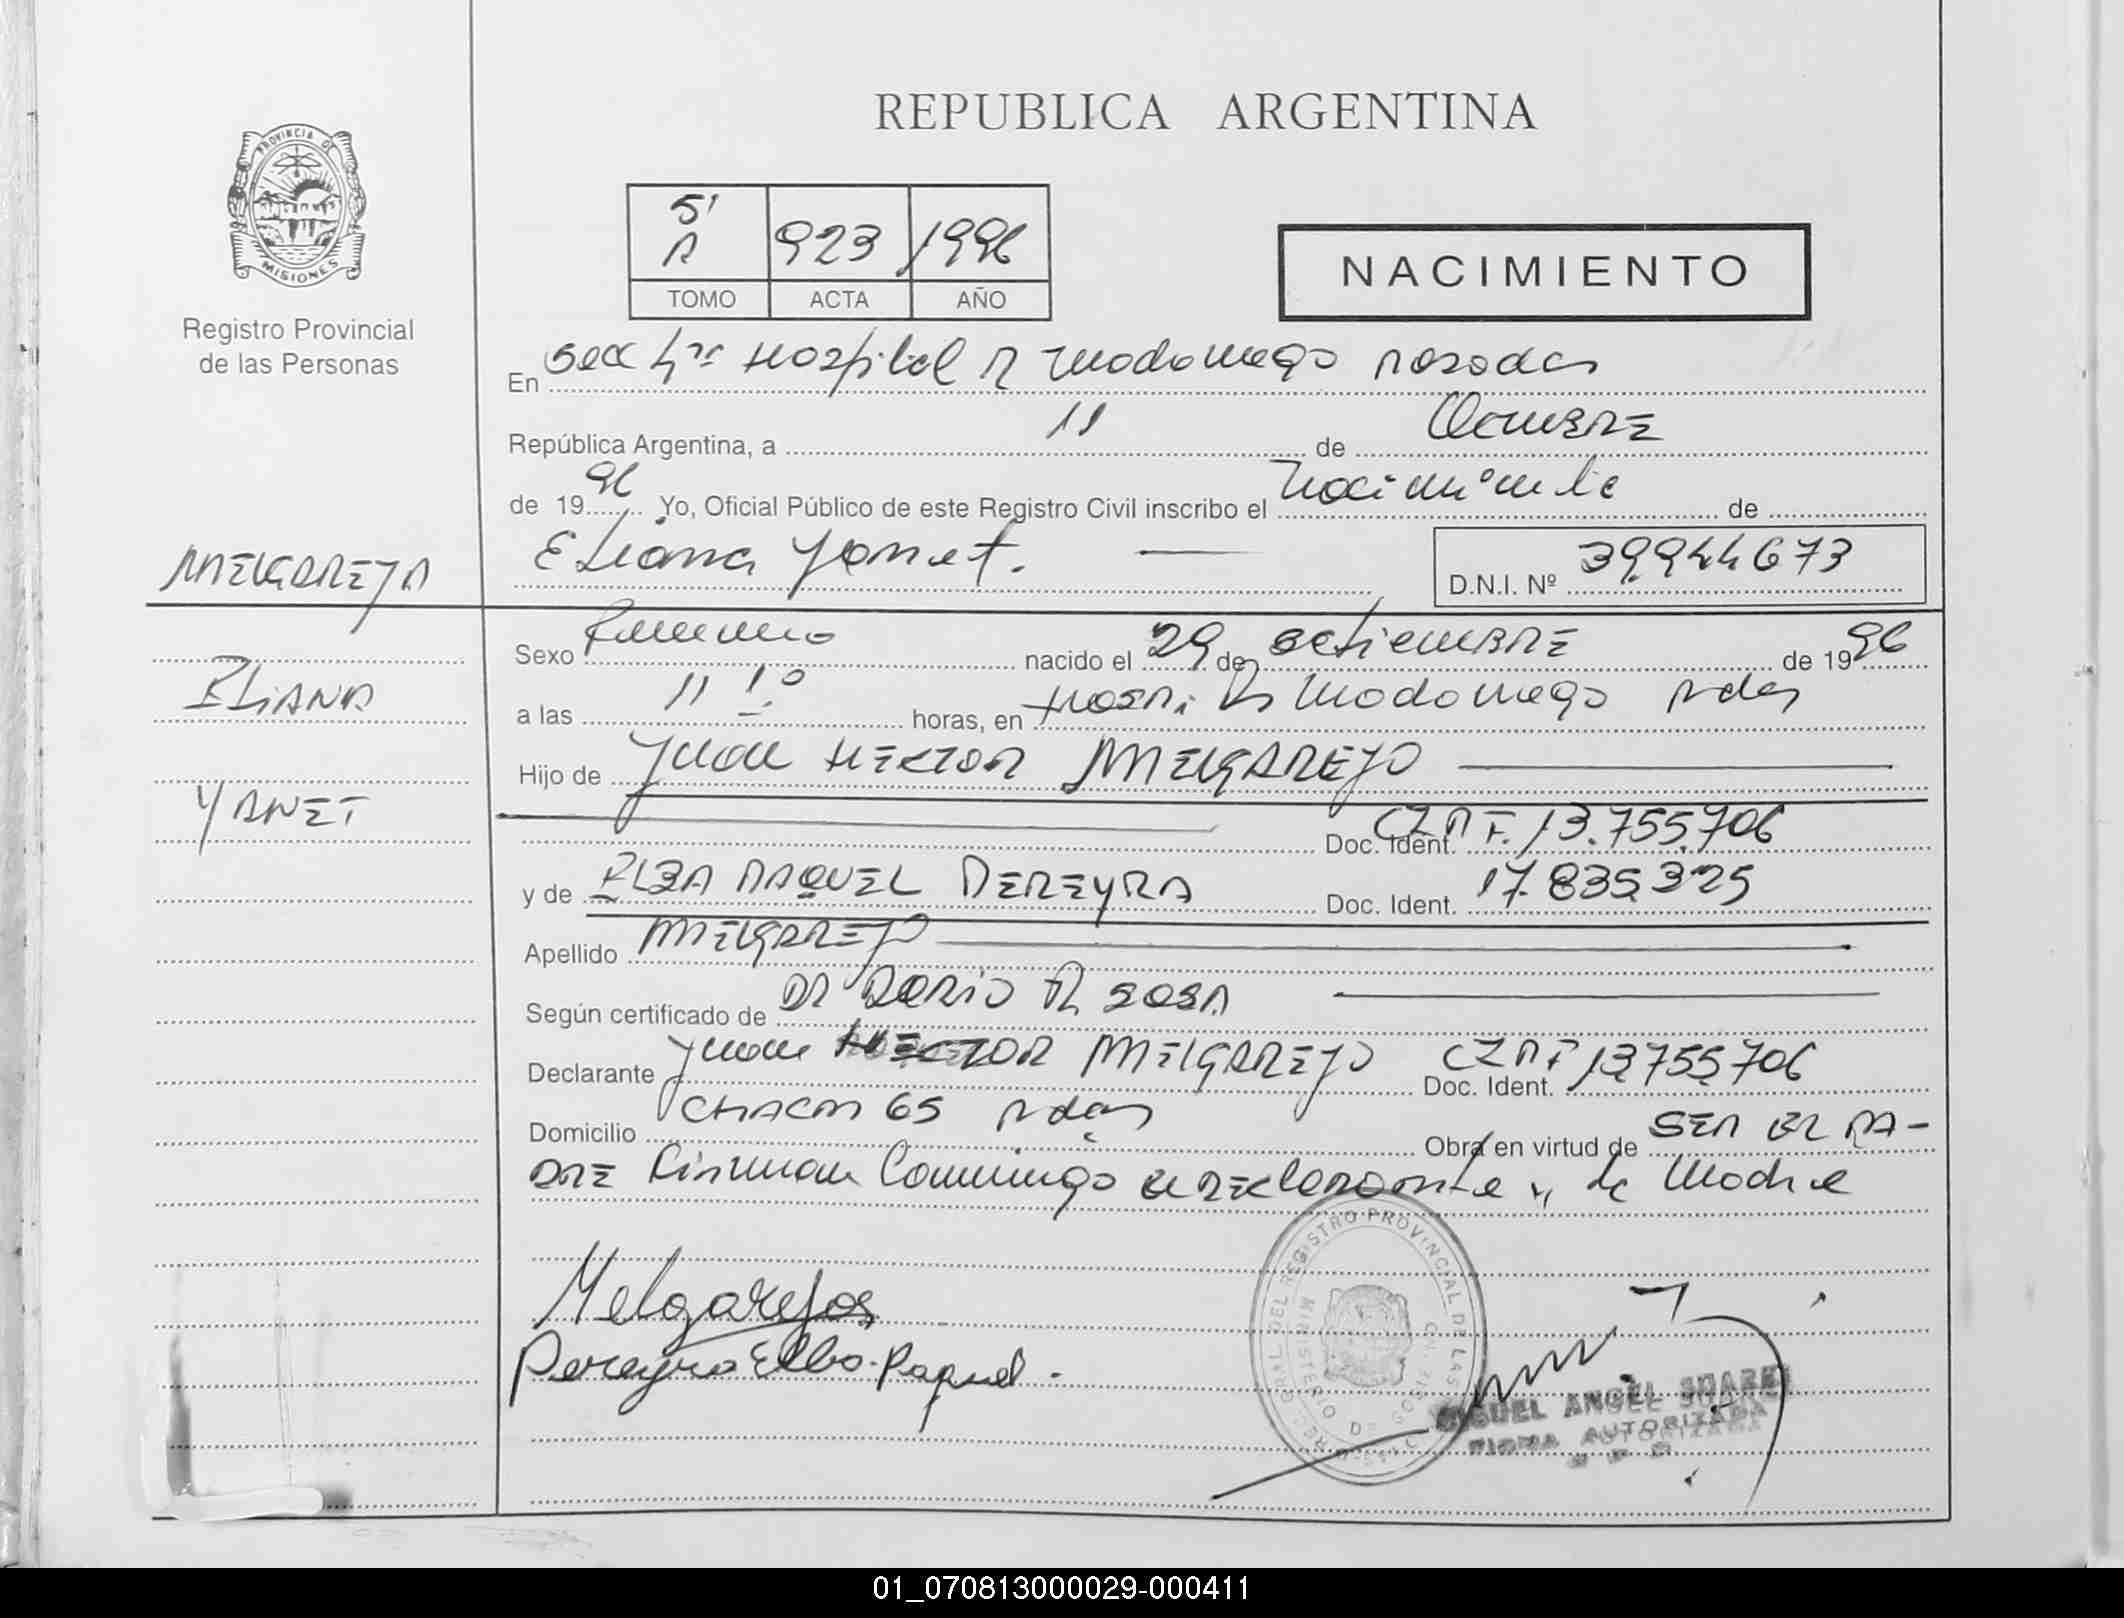 REPUBLICA ARGENTINA
PROVINCIA DE
MISIONES
Registro Provincial
de las Personas
5' A 923 1996
TOMO ACTA AÑO
NACIMIENTO
En Secc Hospital R Madariaga Posadas
República Argentina, a 11 de Octubre
de 1996 Yo, Oficial Público de este Registro Civil inscribo el Nacimiento de
Eliana Yanet.
D.N.I. Nº 39944673
MELGAREJO
ELIANA
YANET
Sexo Femenino nacido el 29 de Setiembre de 1996
a las 11 10 horas, en Hospi R Madariaga Pdas
Hijo de Juan HECTOR MELGAREJO
Doc. Ident. 13.755.706
y de ELBA RAQUEL PEREYRA Doc. Ident. 17.835.325
Apellido MELGAREJO
Según certificado de DR DARIO SOSA
Declarante Juan HECTOR MELGAREJO Doc. Ident. 13755706
Domicilio CHACO 65 Pdas Obra en virtud de SER EL PA-
DRE Firman Conmigo el declarante y la Madre
Melgarejo
Pereyra Elba Raquel.
REGISTRO PROVINCIAL DE LAS
MINISTERIO DE
MIGUEL ANGEL SUAREZ
FIRMA AUTORIZADA
01_070813000029-000411